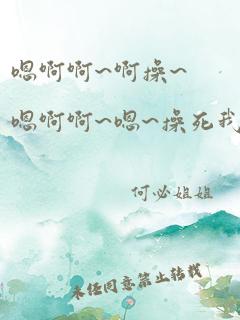 嗯啊啊~啊操~
嗯啊啊~嗯~操死我
何必姐姐
未经同意禁止转载